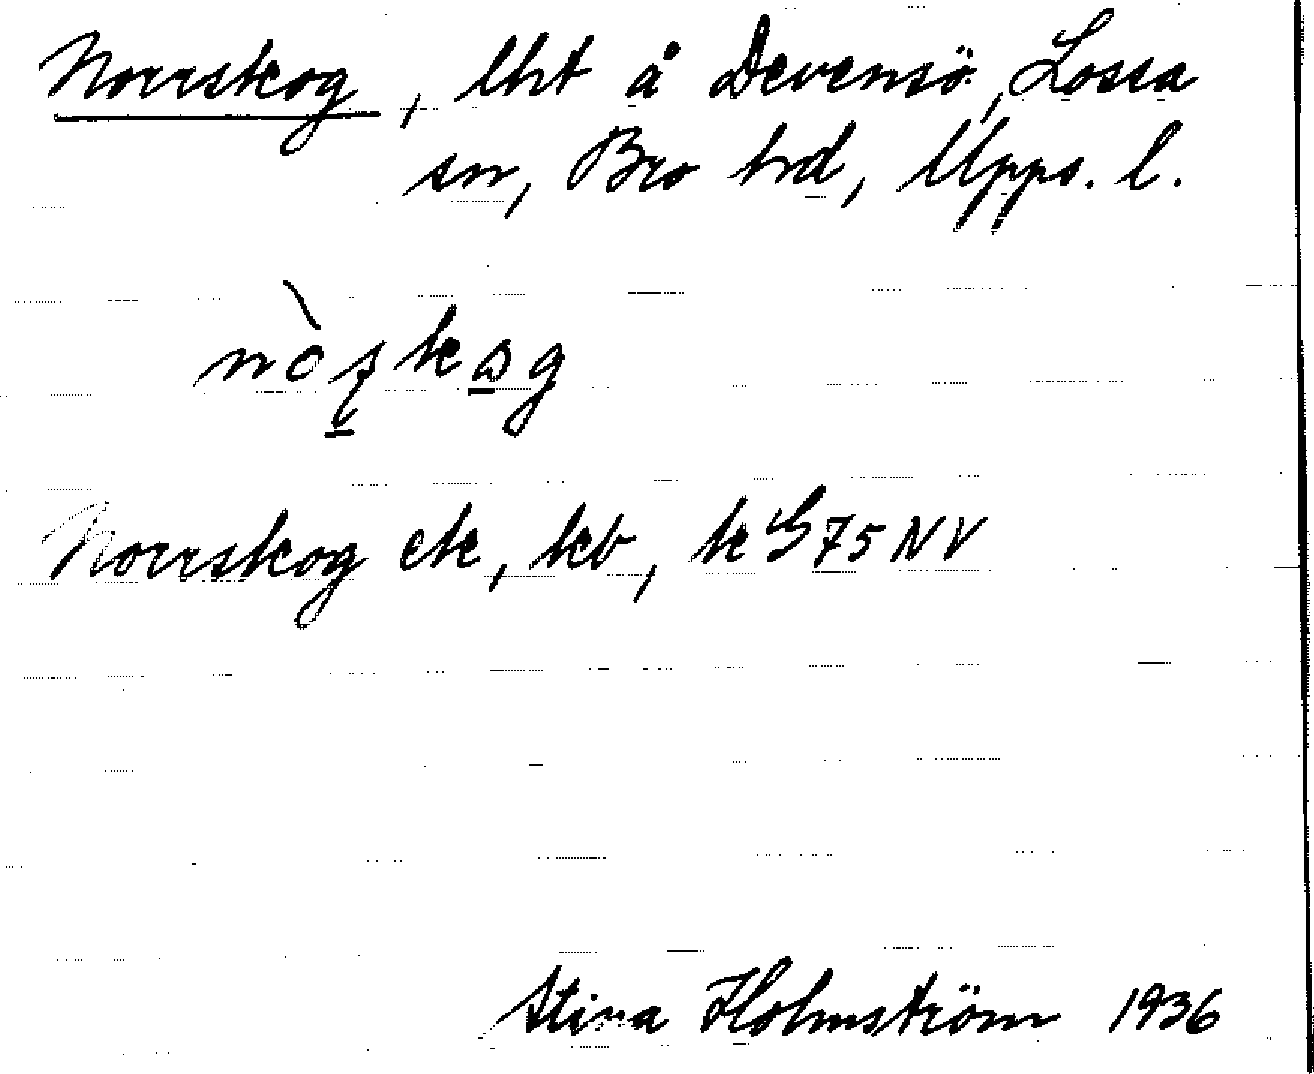 Norrskog, lht å Devensö, Lossa
sn, Bro hd, Upps. l.
Norrskog ek, kb, k S 75 NV
Stina Holmström 1936